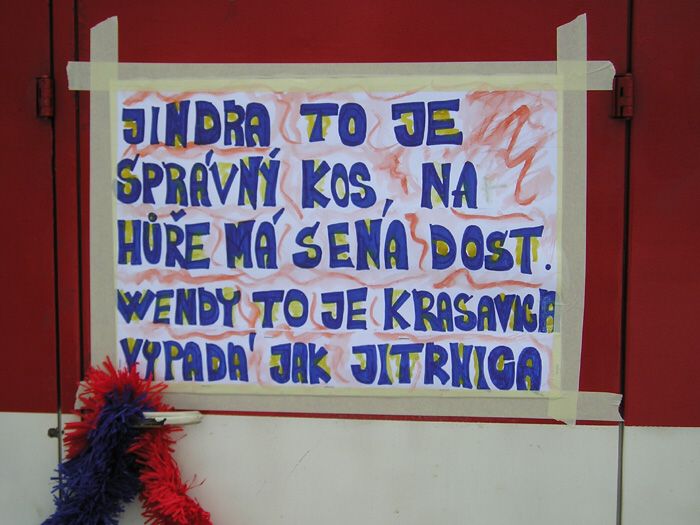 JINDRA TO JE
SPRÁVNÝ KOS, NA
HŮŘE MÁ SENA DOST.
WENDY TO JE KRASAVICA
VYPADÁ JAK JITRNICA